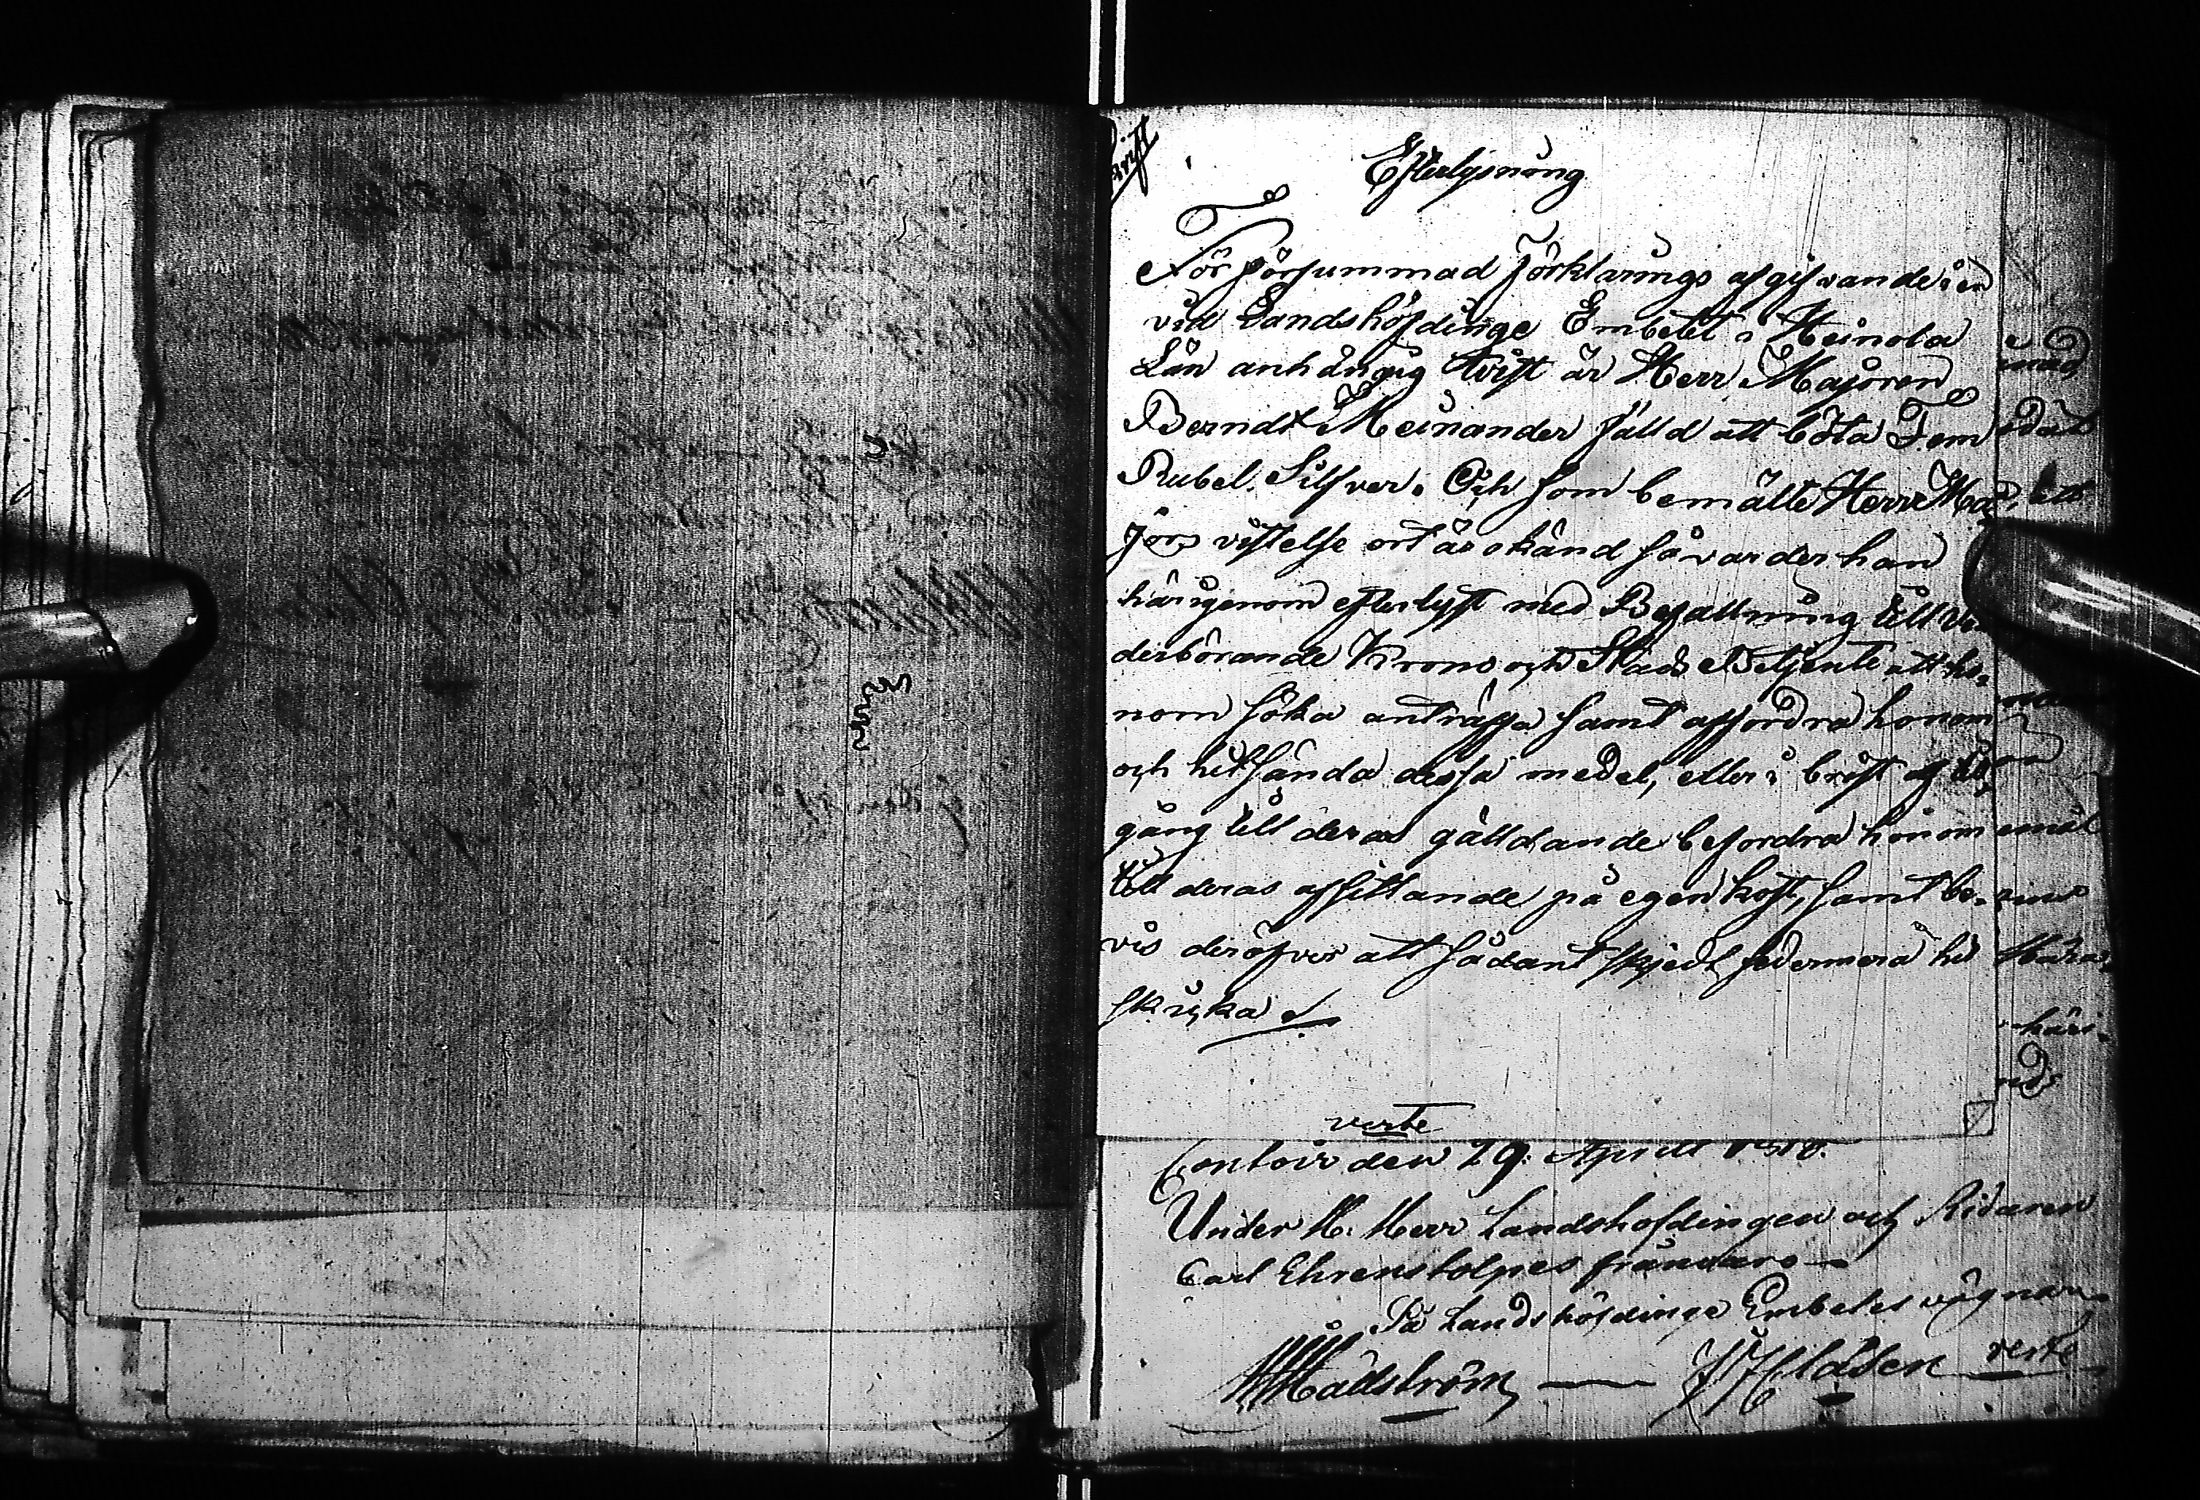 Efterlysning
För försummad förklarings afgifvande i en
vid Landshöfdinge Embetet i Heinola
Län anhängig tvist är Herr Majoren
Berndt Meinander fälld att böta Fem
Rubel Silfver. Och som bemälte Herr Ma=
jors vistelse ort är okänd så varder han
härigenom efterlyst med Befallning till ve=
derbörande Krono och Stads Betjente att ho=
nom söka anträffa samt affordra honom
och hit sända dessa medel, eller i brist af till=
gång till deras gälldande befordra honom
till deras afsittande på egen kost, samt be=
vis deröfver att sådant skjedt sedermera hit
skicka
verte
Contoir den 29. Aprill 1818.
Under H. Herr Landshöfdingen och Ridaren
Carl Ehrenstolpes frånvaro
På Landshöfdinge Embetes vägnar
verte